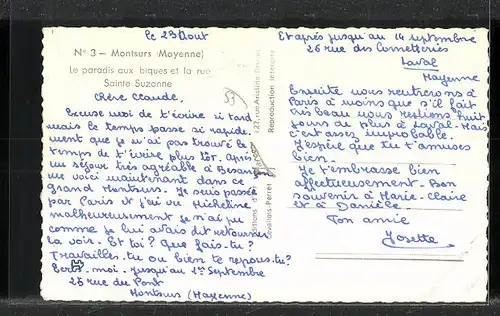 le 23 Août
N° 3 — Montsurs (Mayenne)
Le paradis aux biques et la rue
Sainte Suzanne
Chère Claude,
Excuse moi de t'écrire si tard
mais le temps passe si rapide-
ment que je n'ai pas trouvé le
temps de t'écrire plus tôt. Après
un séjour très agréable à Besan
me voici maintenant dans ce
grand Montsurs. Je suis passée
par Paris et j'ai vu Micheline
malheureusement je n'ai pu
comme je lui avais dit retourner
la voir. Et toi? Que fais-tu?
Travailles-tu ou bien te reposes-tu?
Ecris-moi jusqu'au 1er Septembre
25 rue du Pont
Montsurs (Mayenne)
Reproduction interdite
Et après jusqu'au 14 septembre
26 rue des
Laval
Mayenne
Ensuite nous rentrerons à
Paris à moins que s'il fait
très beau nous restions huit
jours de plus à Laval. Mais
c'est assez improbable.
J'espère que tu t'amuses
bien.
Je t'embrasse bien
affectueusement. Bon
souvenir à Marie-Claire
et à Danièle.
Ton amie
Josette